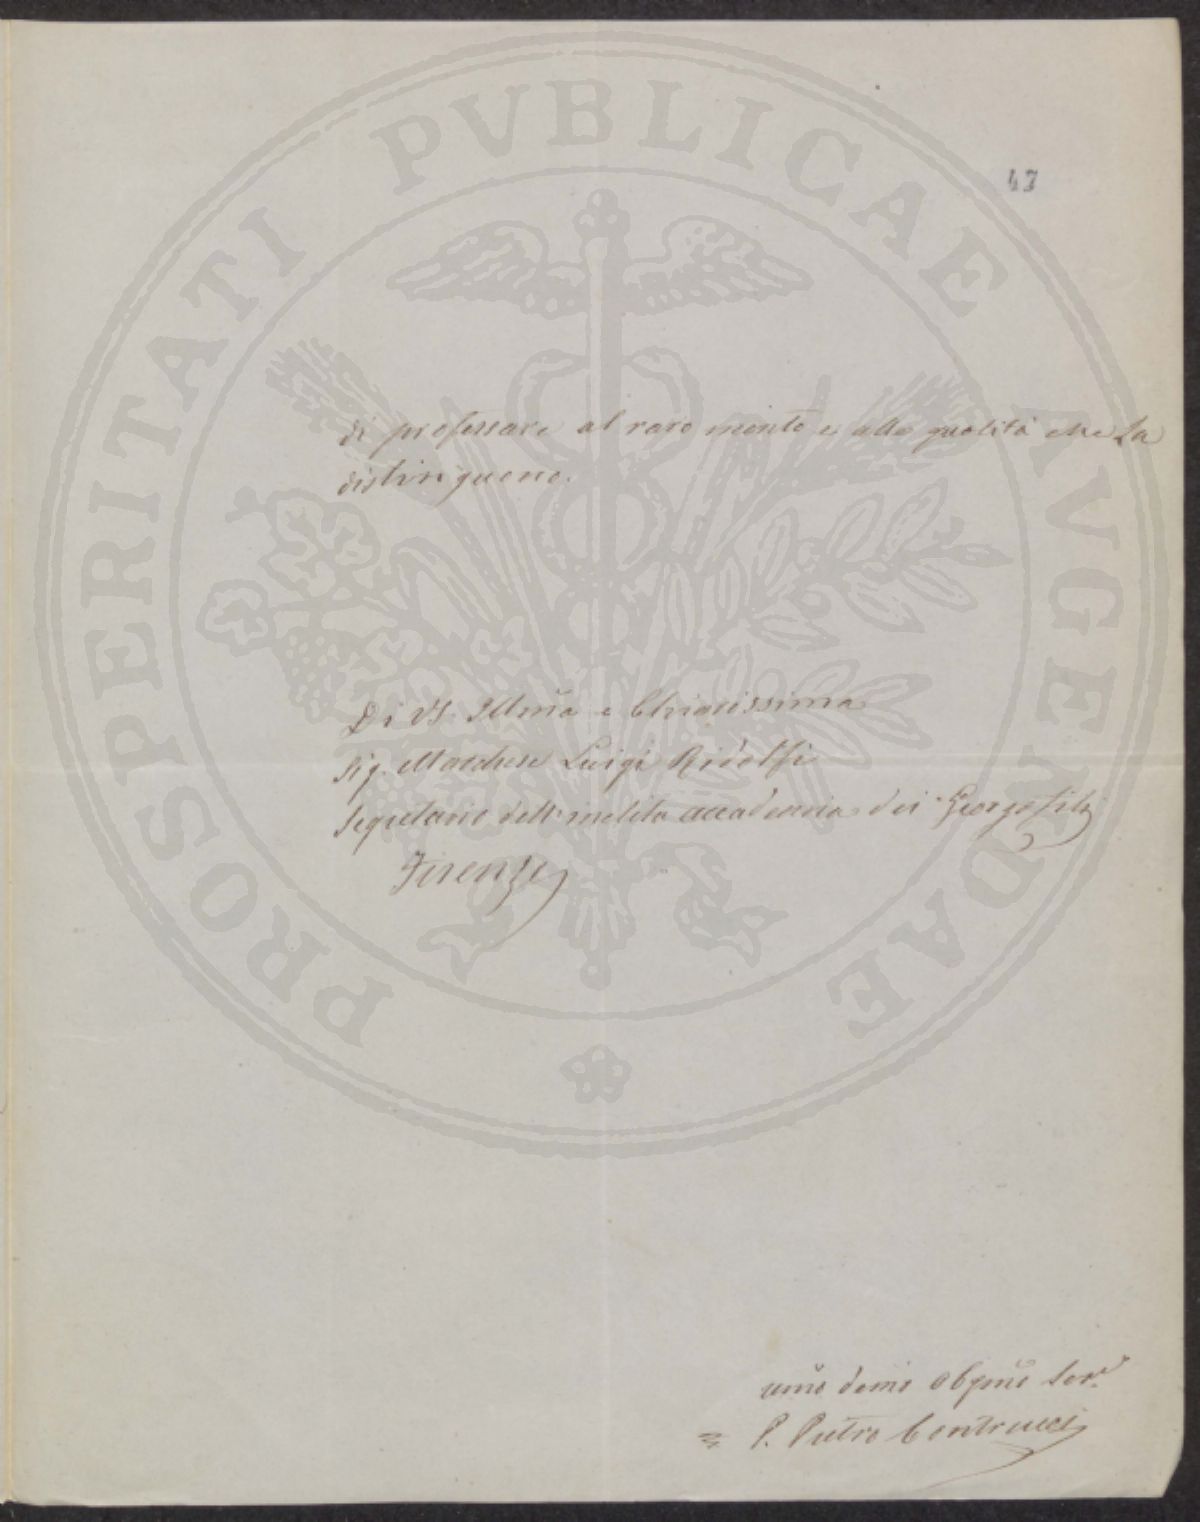 PROSPERITATI PVBLICAE AVGENDAE
43
di professare al raro merito e alle qualità che La
distinguono.
Di VS. Illma e Chiarissima
Sig. Marchese Luigi Ridolfi
Segretario dell'inclita accademia dei Georgofili
Firenze
umo devmo obgmo Ser.e
P. Pietro Contrucci